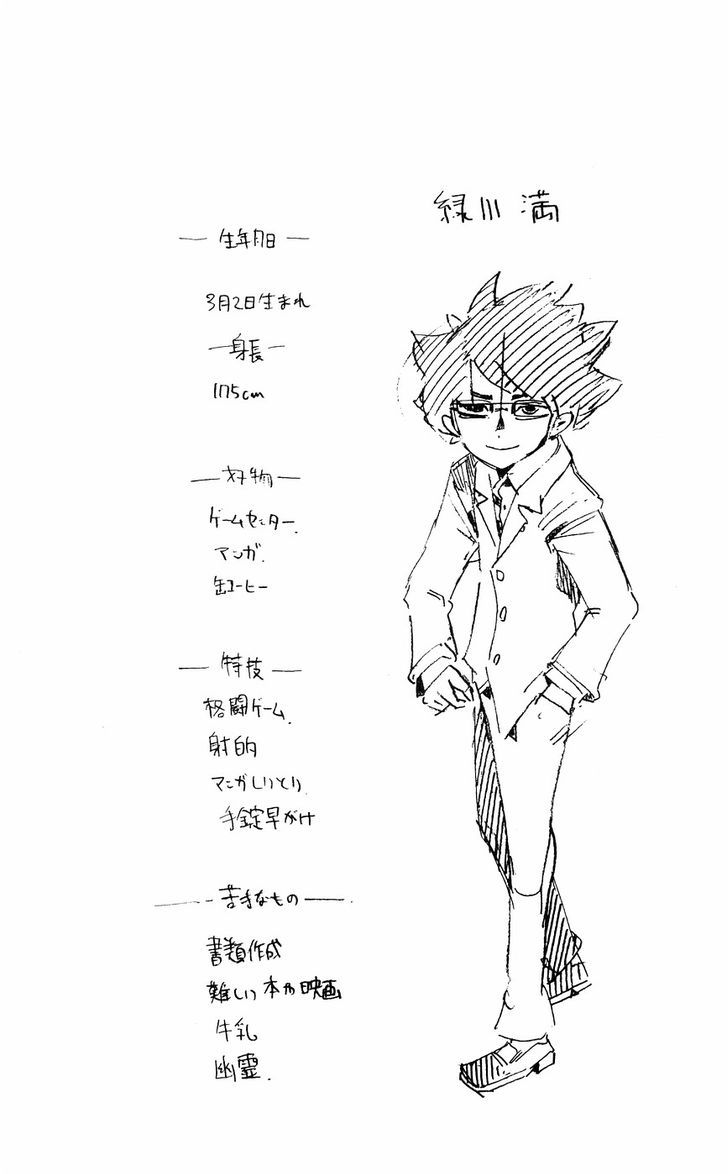 緑川 満
― 生年月日 ―
3月2日生まれ
― 身長 ―
175cm
― 好物 ―
ゲームセンター.
マンガ.
缶コーヒー
― 特技 ―
格闘ゲーム.
射的
マンガしりとり.
手錠早がけ
― 苦手なもの ―
書類作成
難しい本や映画
牛乳
幽霊.